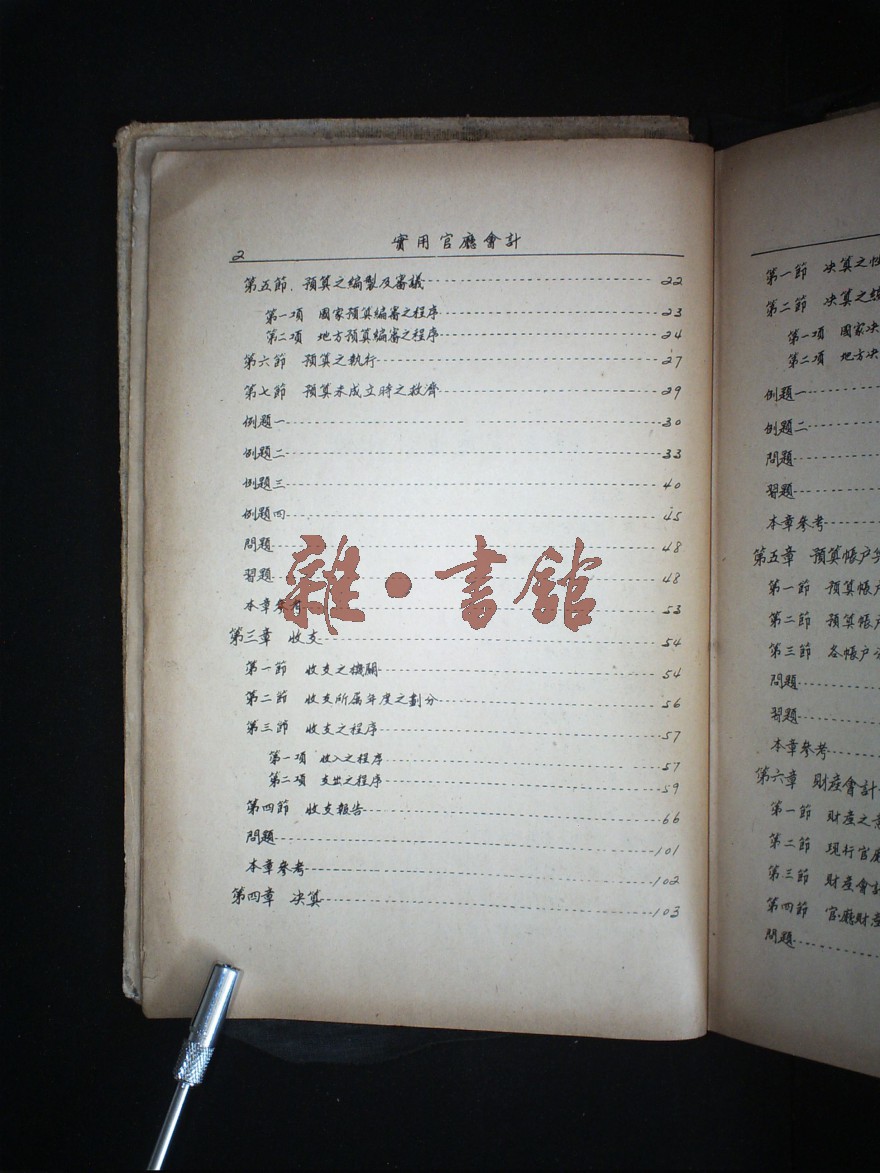 2
實用官廳會計
第五節 預算之編製及審議 22
第一項 國家預算編審之程序 23
第二項 地方預算編審之程序 24
第六節 預算之執行 27
第七節 預算未成立時之救濟 29
例題一 30
例題二 33
例題三 40
例題四 45
問題 48
習題 48
本章參考 53
第三章 收支 54
第一節 收支之機關 54
第二節 收支所屆年度之劃分 56
第三節 收支之程序 57
第一項 收入之程序 57
第二項 支出之程序 59
第四節 收支報告 66
問題 101
本章參考 102
第四章 决算 103
雜·書館
第一節 决算之性
第二節 决算之
第一項 國家决
第二項 地方决
例題一
例題二
問題
習題
本章參考
第五章 預算帳户
第一節 預算帳户
第二節 預算帳户
第三節 各帳户
問題
習題
本章參考
第六章 財產會計
第一節 財產之
第二節 現行官廳
第三節 財產會計
第四節 官廳財產
問題